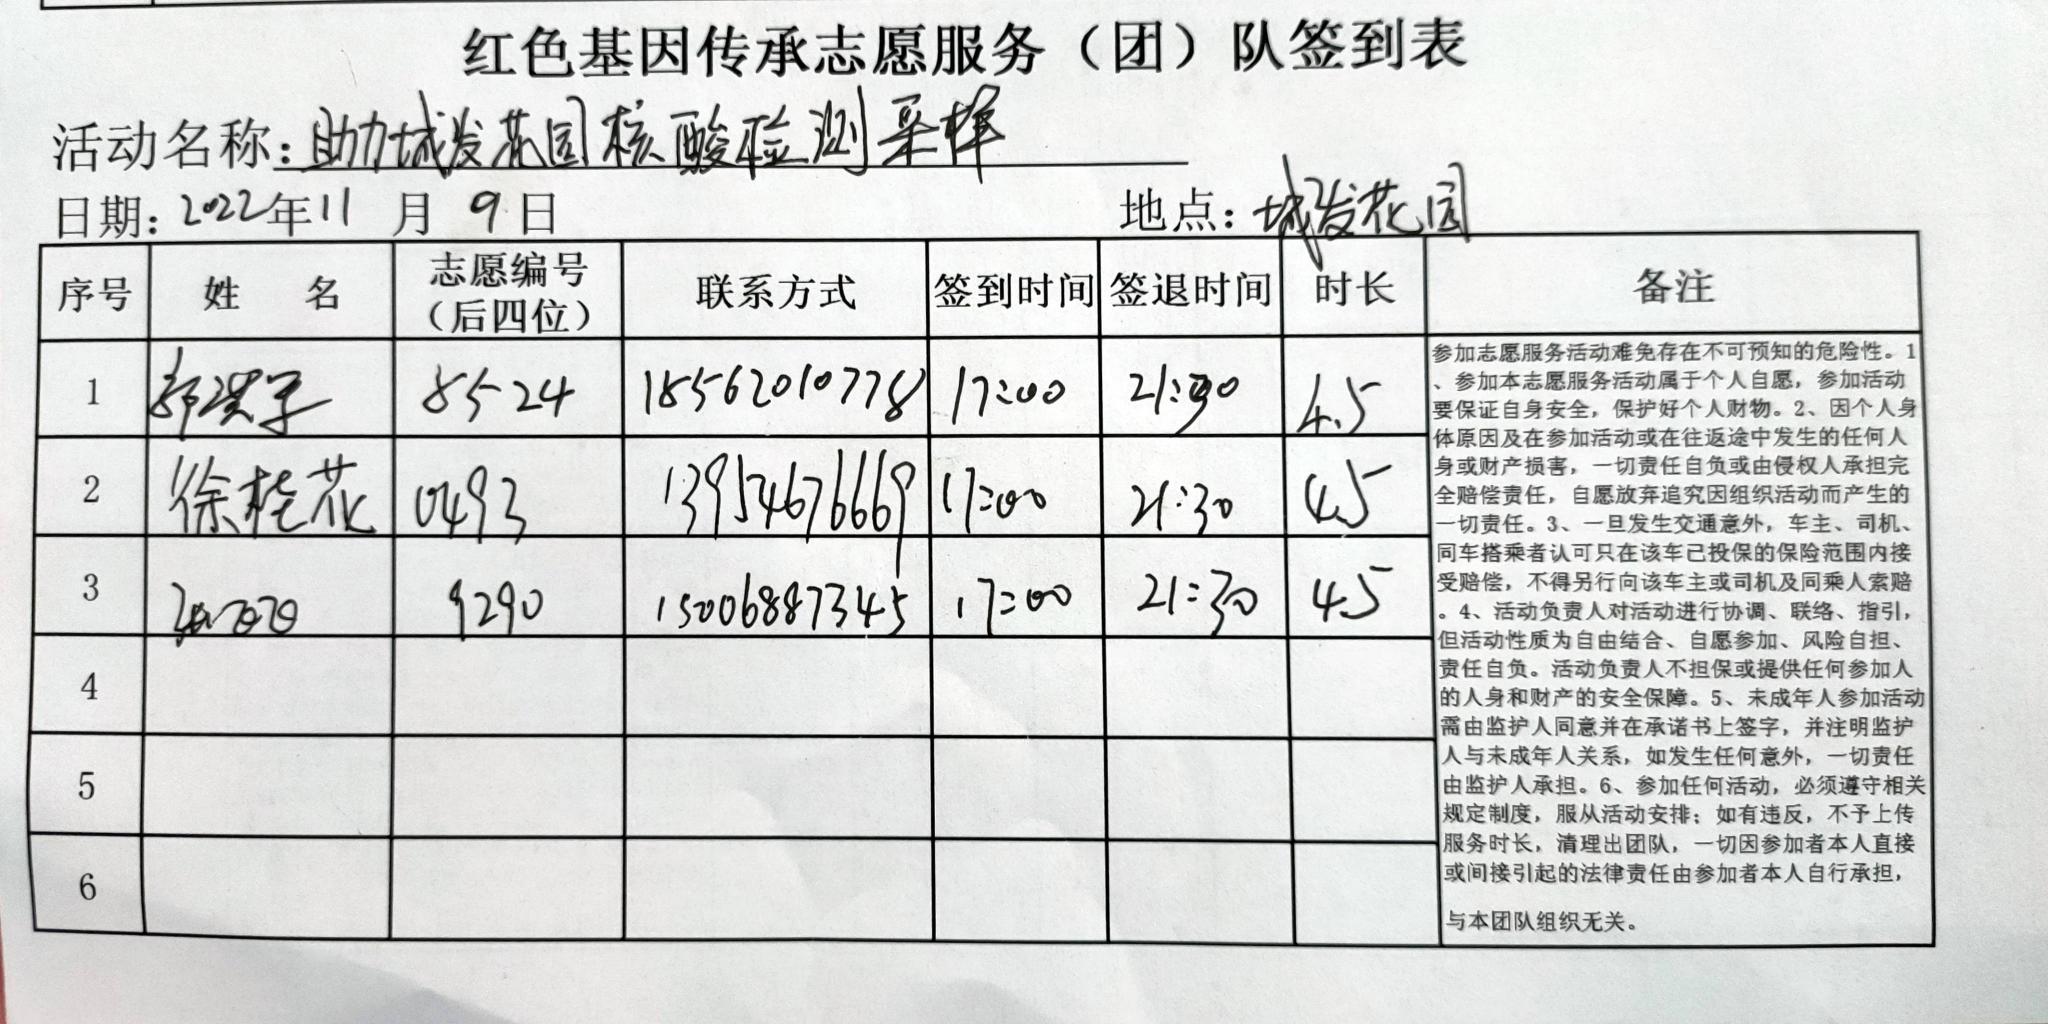 红色基因传承志愿服务（团）队签到表
活动名称：助力城发花园核酸检测采样
日期：2022年11月9日 地点：城发花园
序号 姓名 志愿编号（后四位） 联系方式 签到时间 签退时间 时长 备注
1 8524 18562010778 17:00 21:30 4.5
2 徐桂花 0493 13954676669 17:00 21:30 4.5
3 9290 15006887345 17:00 21:30 4.5
4
5
6
参加志愿服务活动难免存在不可预知的危险性。1
、参加本志愿服务活动属于个人自愿，参加活动
要保证自身安全，保护好个人财物。2、因个人身
体原因及在参加活动或在往返途中发生的任何人
身或财产损害，一切责任自负或由侵权人承担完
全赔偿责任，自愿放弃追究因组织活动而产生的
一切责任。3、一旦发生交通意外，车主、司机、
同车搭乘者认可只在该车已投保的保险范围内接
受赔偿，不得另行向该车主或司机及同乘人索赔
。4、活动负责人对活动进行协调、联络、指引，
但活动性质为自由结合、自愿参加、风险自担、
责任自负。活动负责人不担保或提供任何参加人
的人身和财产的安全保障。5、未成年人参加活动
需由监护人同意并在承诺书上签字，并注明监护
人与未成年人关系，如发生任何意外，一切责任
由监护人承担。6、参加任何活动，必须遵守相关
规定制度，服从活动安排；如有违反，不予上传
服务时长，清理出团队，一切因参加者本人直接
或间接引起的法律责任由参加者本人自行承担，
与本团队组织无关。